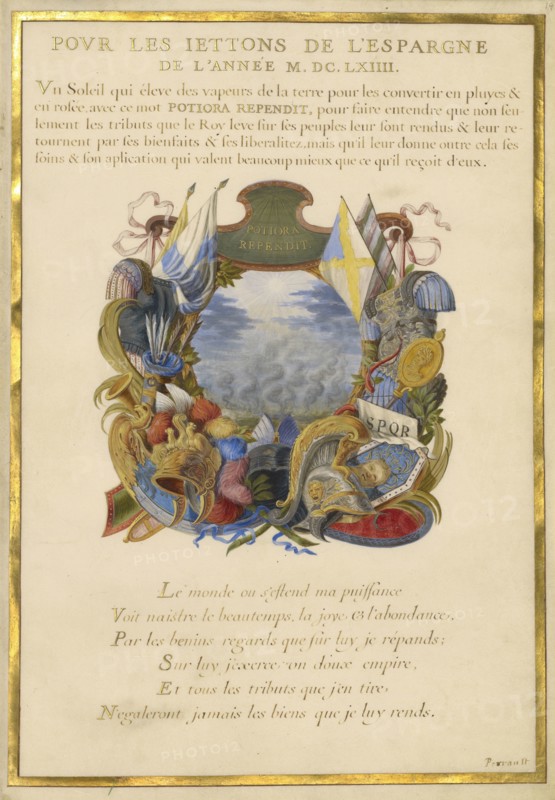 POVR LES IETTONS DE L'ESPARGNE
DE L'ANNÉE M. DC. LXIIII.
Vn Soleil qui éleve des vapeurs de la terre pour les convertir en pluyes &
en rosée, avec ce mot POTIORA REPENDIT, pour faire entendre que non seu-
lement les tributs que le Roy leve sur ses peuples leur sont rendus & leur re-
tournent par ses bienfaits & ses liberalitez, mais qu'il leur donne outre cela ses
soins & son aplication qui valent beaucoup mieux que ce qu'il reçoit d'eux.
POTIORA
REPENDIT.
SPQR
Le monde ou s'estend ma puissance
Voit naistre le beautemps, la joye, & l'abondance,
Par les benins regards que sur luy je répands;
Sur luy j'exerce un doux empire,
Et tous les tributs que j'en tire,
N'egaleront jamais les biens que je luy rends.
Perrault
PHOTO12